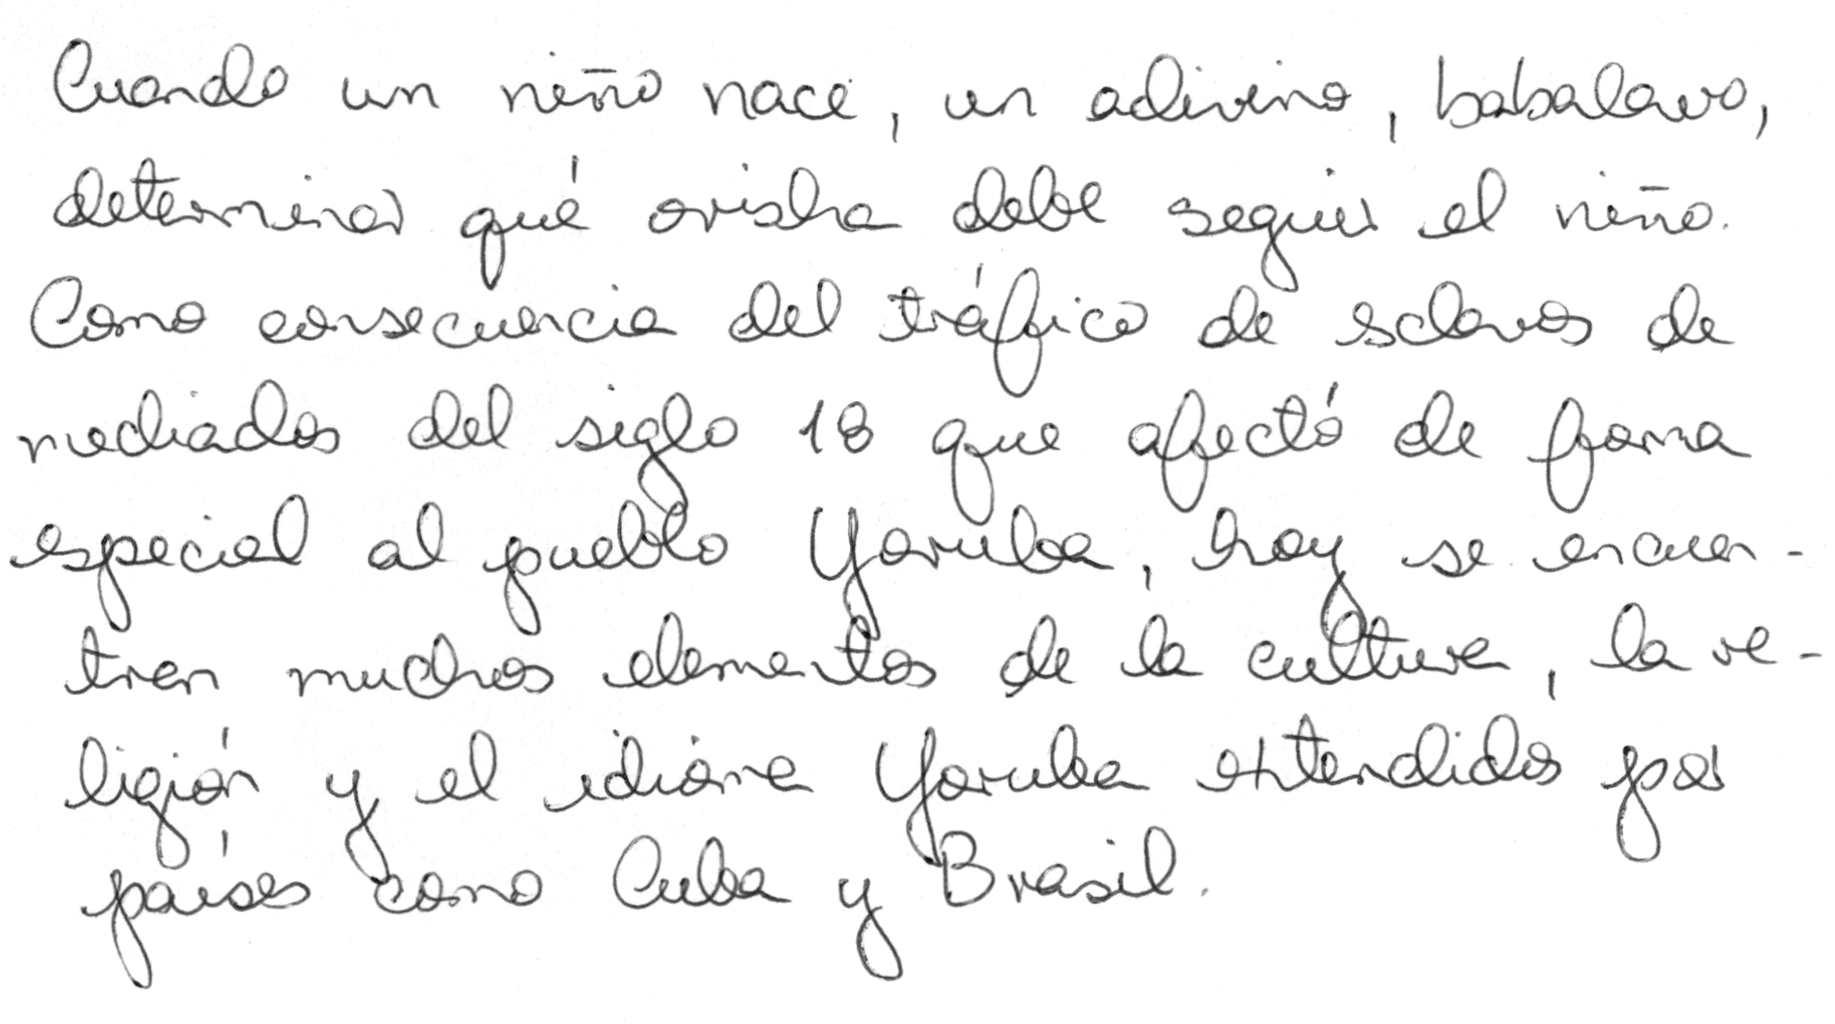 Cuando un niño nace, un adivino, babalawo,
determinar qué orisha debe seguir el niño.
Como consecuencia del tráfico de sclavos de
mediados del siglo 18 que afectó de forma
especial al pueblo Yoruba, hoy se encuen-
tran muchos elementos de la cultura, la re-
ligión y el idioma Yoruba extendidos por
países como Cuba y Brasil.